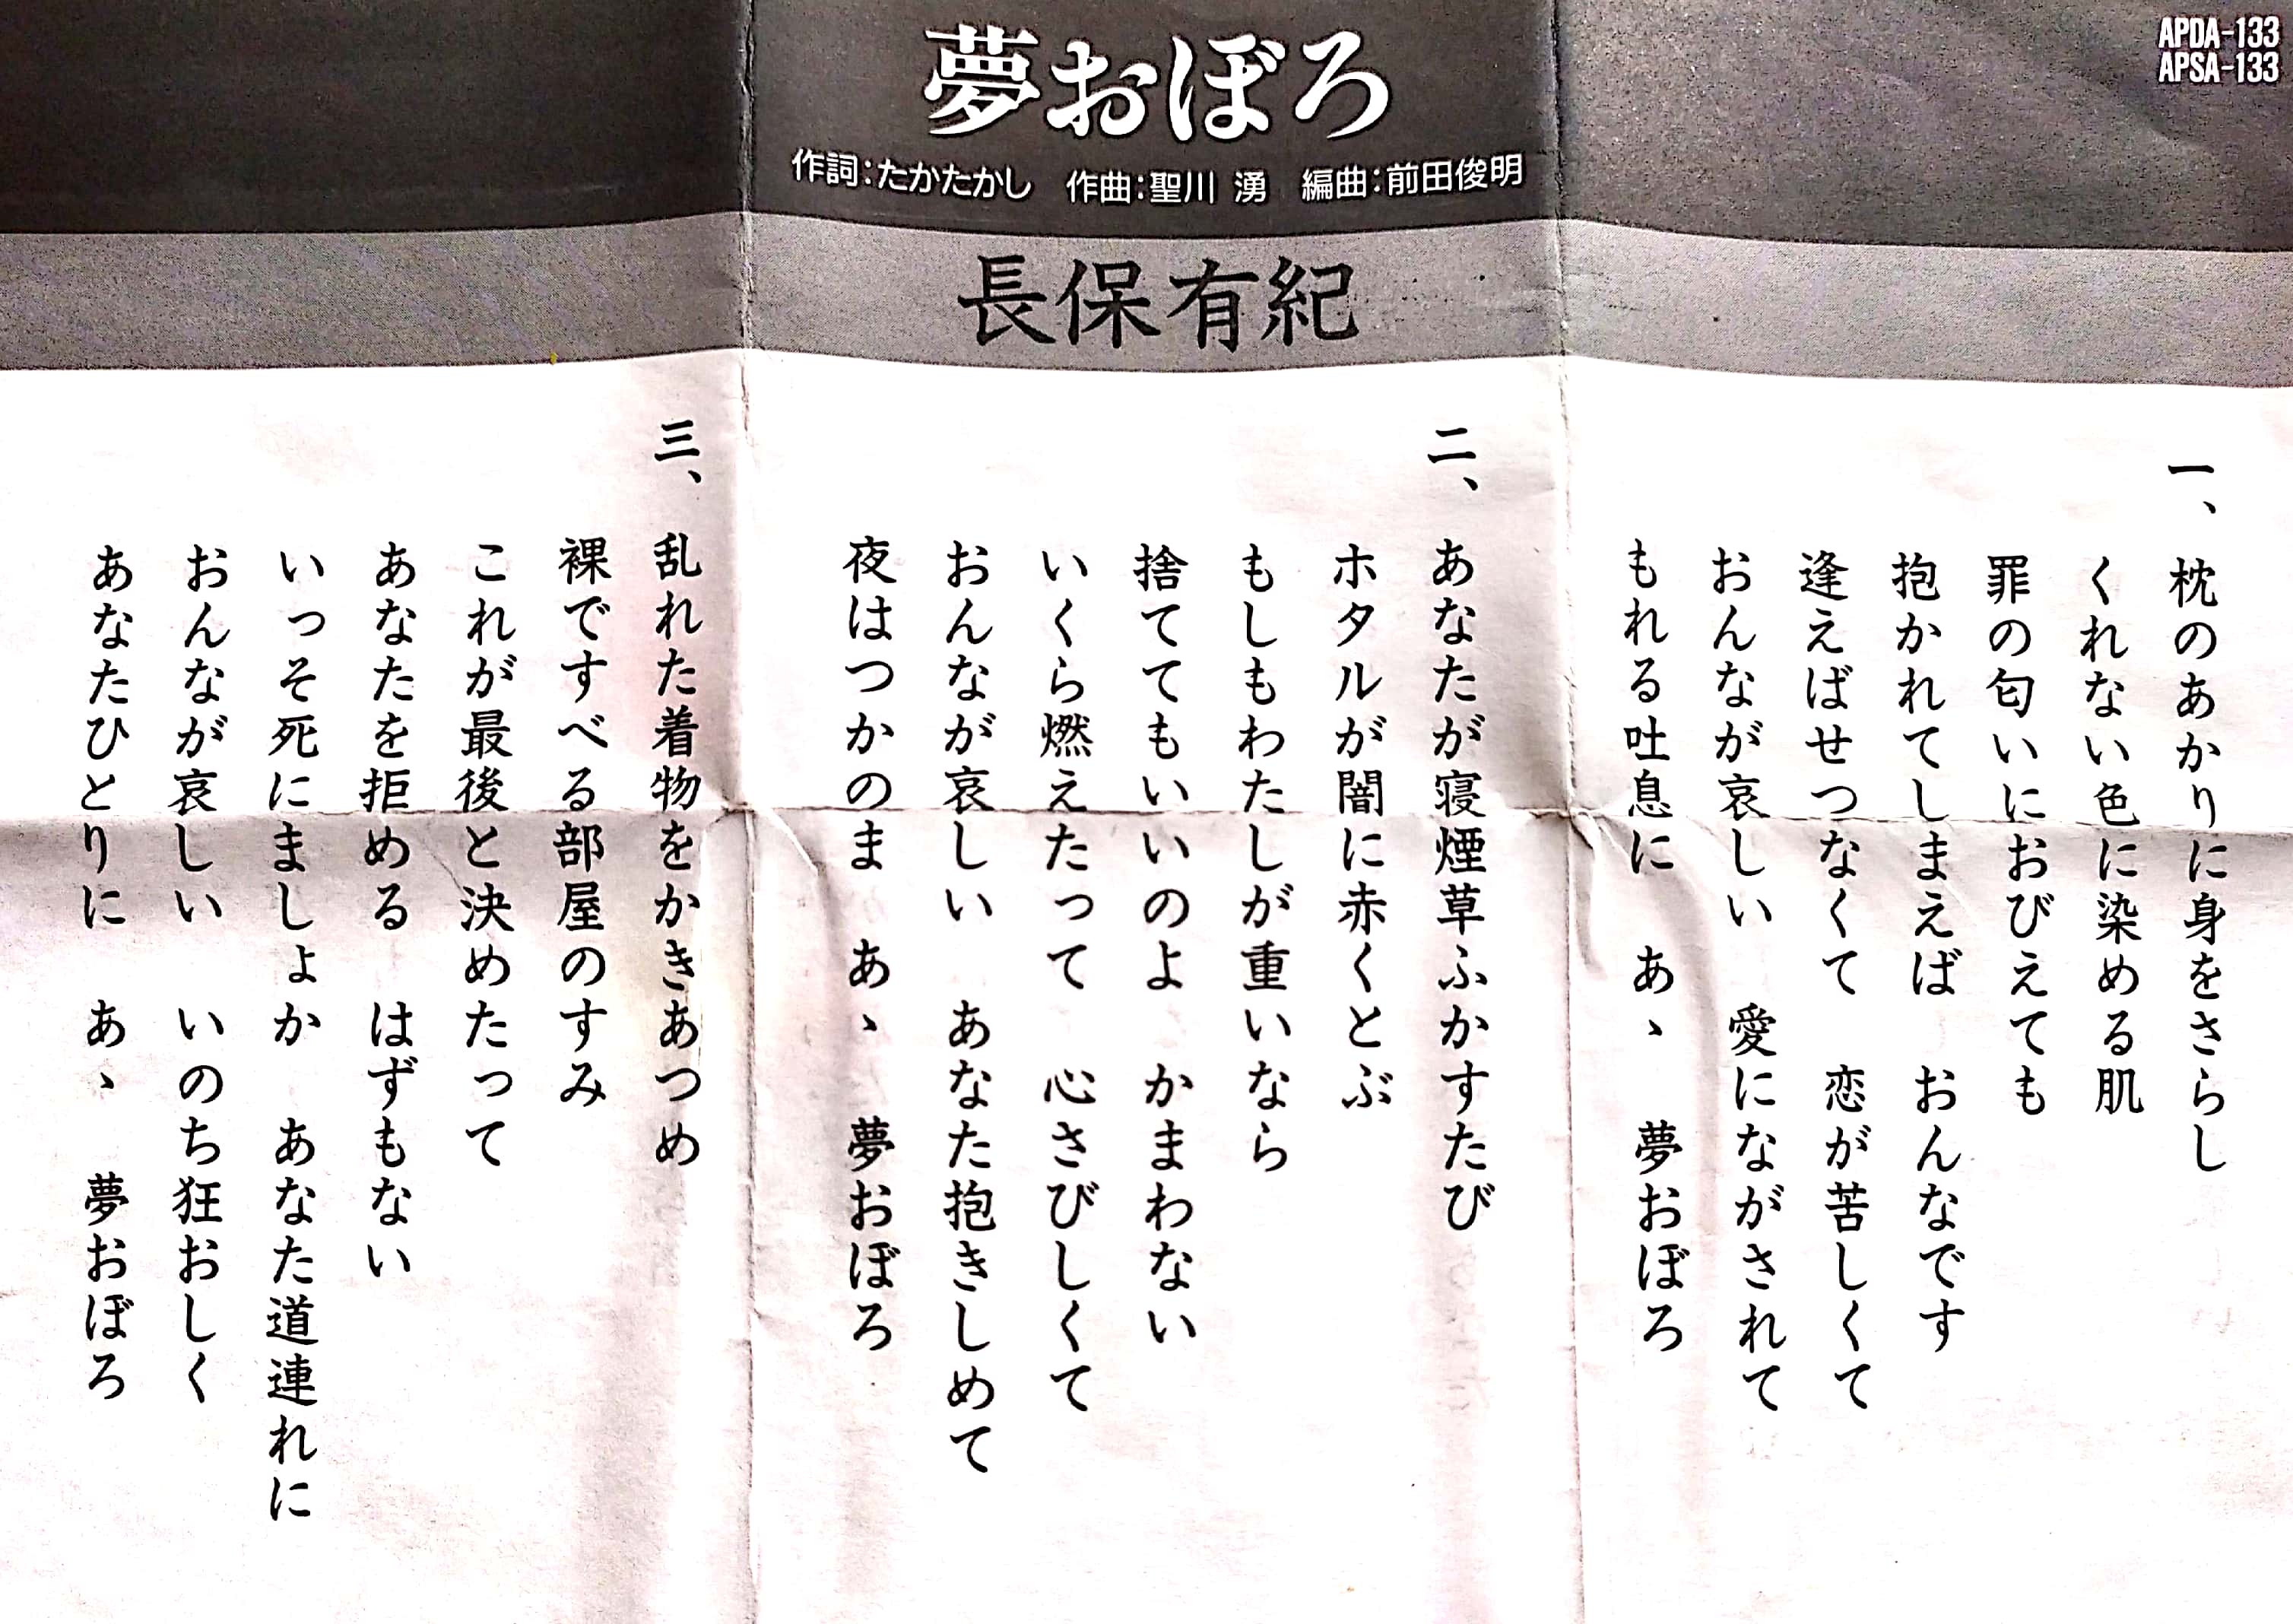 APDA-133
APSA-133
夢おぼろ
作詞：たかたかし　作曲：聖川 湧　編曲：前田俊明
長保有紀
一、枕のあかりに身をさらし
くれない色に染める肌
罪の匂いにおびえても
抱かれてしまえば　おんなです
逢えばせつなくて　恋が苦しくて
おんなが哀しい　愛にながされて
もれる吐息に　あゝ　夢おぼろ
二、あなたが寝煙草ふかすたび
ホタルが闇に赤くとぶ
もしもわたしが重いなら
捨ててもいいのよ　かまわない
いくら燃えたって　心さびしくて
おんなが哀しい　あなた抱きしめて
夜はつかのま　あゝ　夢おぼろ
三、乱れた着物をかきあつめ
裸ですべる部屋のすみ
これが最後と決めたって
あなたを拒める　はずもない
いっそ死にましょか　あなた道連れに
おんなが哀しい　いのち狂おしく
あなたひとりに　あゝ　夢おぼろ